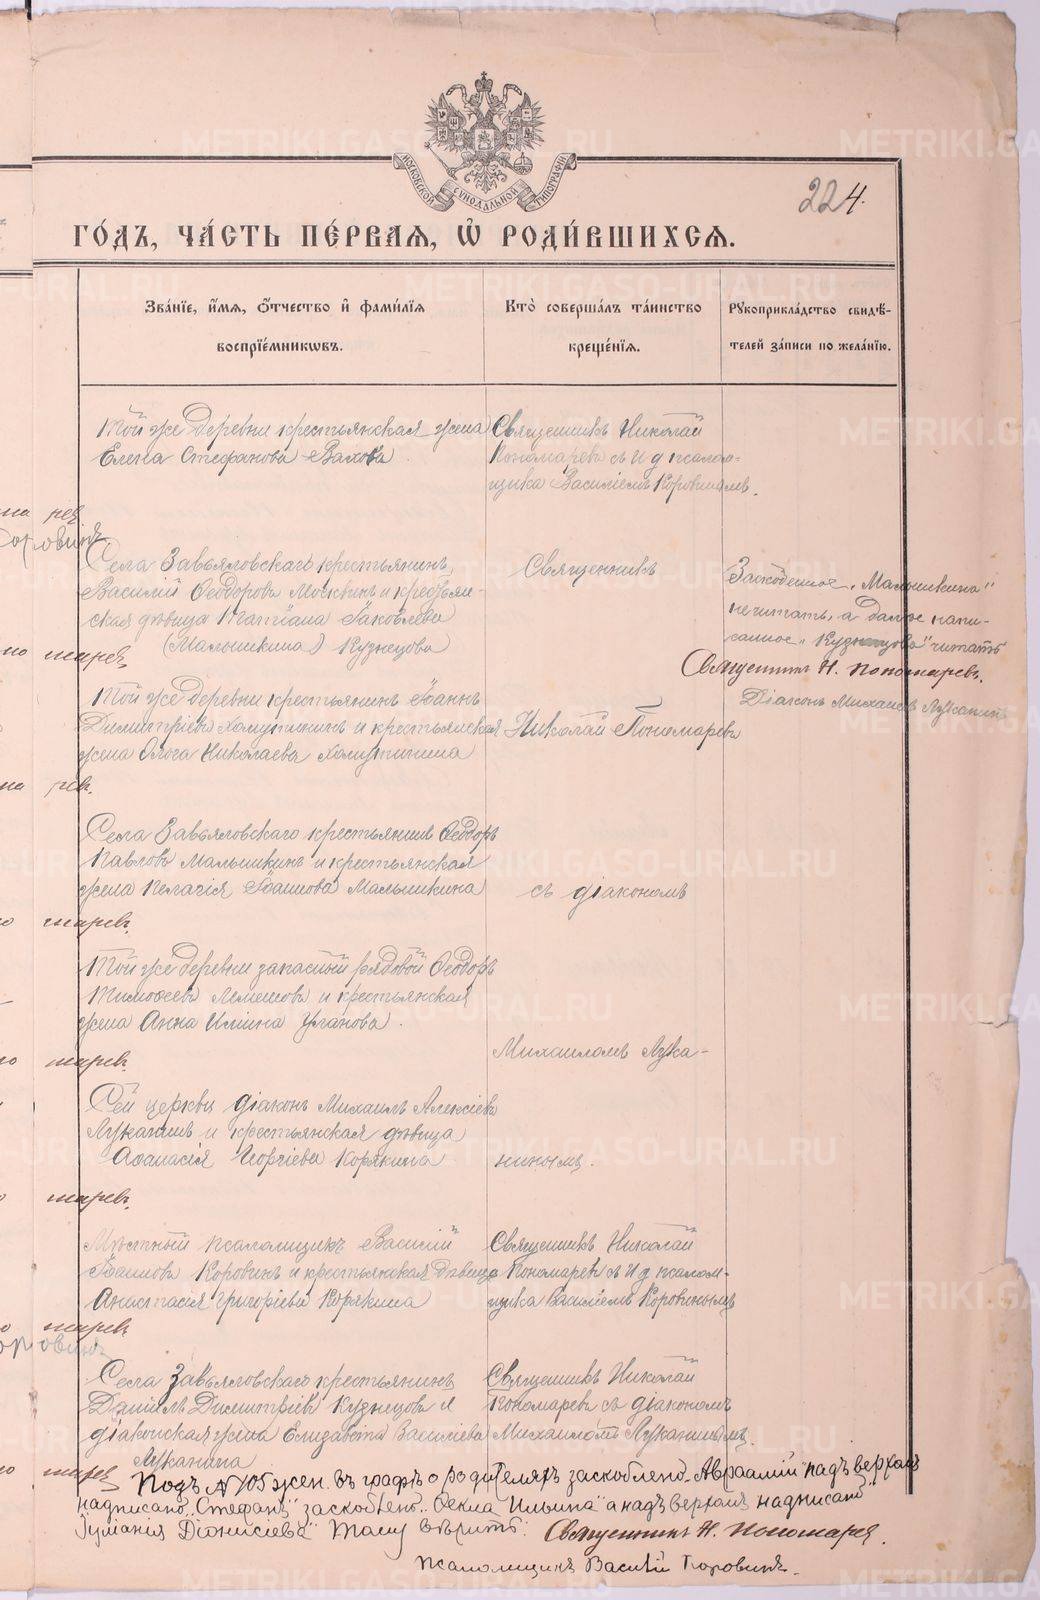 МОСКОВСКОЙ СѴНОДАЛЬНОЙ ТИПОГРАФІИ
224.
ГО́ДЪ, ЧА́СТЬ ПЕ́РВАЯ, Ѡ҆ РОДИ́ВШИХСЯ.
Зва́нїе, и҆́мя, ѻ҆́тчество и҆ фами́лїя
воспрїе́мникωвъ.
Кто̀ соверша́лъ та́инство
креще́нїя.
Рꙋкоприкла́дство свидѣ́-
телей за́писи по жела́нїю.
Той же деревни крестьянская жена
Елена Стефанова Вахова
Священникъ Николай
Пономаревъ съ И д псалом-
щика Василіемъ Коровинымъ.
Села Завьяловскаго крестьянинъ
Василій Ѳеодоровъ Москвинъ и крестьян-
ская дѣвица Татіана Іаковлева
(Малышкина) Кузнецова
Священникъ
Заскобленное „Малышкина"
не читать, а далее напи-
санное „Кузнецова" читать
Священникъ Н. Пономаревъ.
Діаконъ Михаилъ Луканинъ
Той же деревни крестьянинъ Іоаннъ
Димитріевъ Хомутининъ и крестьянская
жена Ольга Николаева Хомутинина
Николай Пономаревъ
Села Завьяловскаго крестьянинъ Ѳеодоръ
Павловъ Малышкинъ и крестьянская
жена Пелагія Іоаннова Малышкина
съ діакономъ
Той же деревни запасный рядовой Ѳеодоръ
Тимоѳеевъ Лемешовъ и крестьянская
жена Анна Ильина Уланова.
Михаиломъ Лука-
Сей церкви діаконъ Михаилъ Алексіевъ
Луканинъ и крестьянская дѣвица
Аѳанасія Георгіева Корякина
нинымъ.
Мѣстный псаломщикъ Василій
Іоанновъ Коровинъ и крестьянская дѣвица
Анастасія Григоріева Корякина
Священникъ Николай
Пономаревъ съ И д псалом-
щика Василіемъ Коровинымъ
Села Завьяловскаго крестьянинъ
Даніилъ Димитріевъ Кузнецовъ и
діаконская жена Елизавета Василіева
Луканина
Священникъ Николай
Пономаревъ съ діакономъ
Михаиломъ Луканинымъ.
Подъ № 105 жен. въ графѣ о родителяхъ заскоблено „Авраамій" надъ верхомъ
надписано „Стефанъ" заскоблено „Ѳекла Ильина" а надъ верхомъ надписано
Іуліанія Діонисіева" Тому вѣрить: Священникъ Н. Пономаревъ.
Псаломщикъ Василій Коровинъ.
METRIKI.GASO-URAL.RU